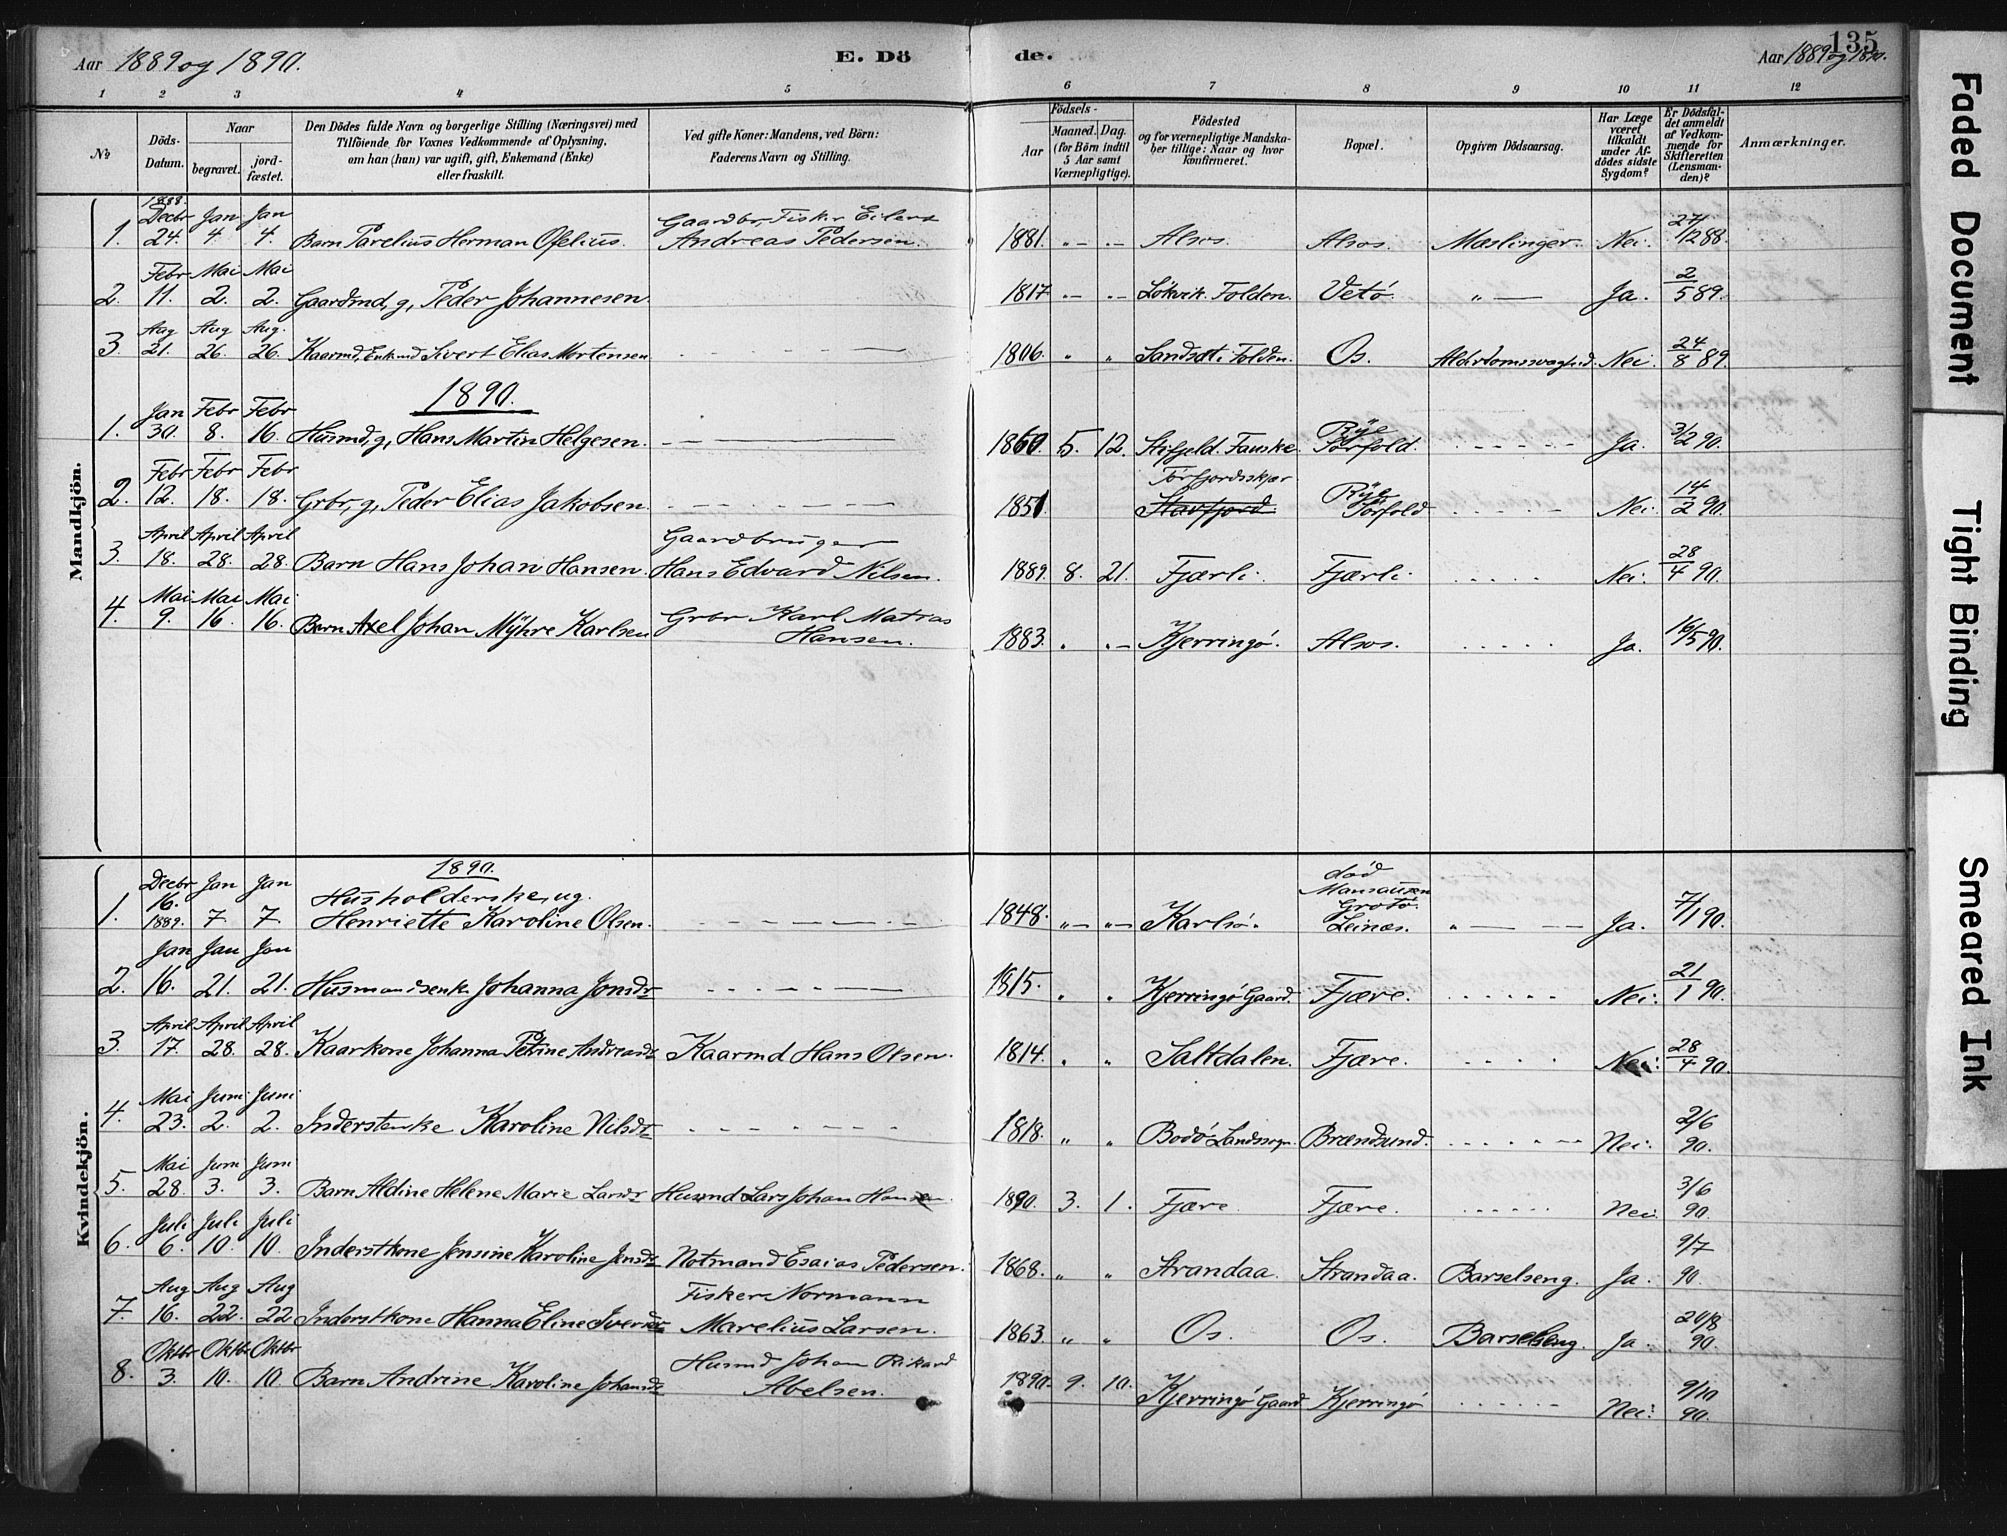 Aar 1889 og 1890.
E. Dö
de.
135
Aar 1889 og 1890.
1 2 3 4 5 6 7 8 9 10 11 12
No
Döds-Datum.
Naar
begravet.
jord-fæstet.
Den Dödes fulde Navn og borgerlige Stilling (Næringsvei) med
Tilföiende for Voxnes Vedkommende af Oplysning,
om han (hun) var ugift, gift, Enkemand (Enke)
eller fraskilt.
Ved gifte Koner: Mandens, ved Börn:
Faderens Navn og Stilling.
Födsels-
Aar
Maaned. Dag.
(for Börn indtil
5 Aar samt
Værnepligtige).
Födested
og for værnepligtige Mandska-
ber tillige: Naar og hvor
konfirmeret.
Bopæl.
Opgiven Dödsaarsag.
Har Læge
været
tilkaldt
under Af-
dödes sidste
Sygdom?
Er Dödsfal-
det anmeldt
af Vedkom-
mende for
Skifteretten
(Lensman-
den)?
Anmærkninger.
Mandkjön.
1. 1888. Decbr 24. Jan 4. Jan 4. Barn Parelius Herman Ofelius. Gaardbr, Fisker Eilert Andreas Pedersen. 1881. "— "— Alsos. Alsos. Mæslinger. Nei. 27/12 88.
2. Febr 11. Mai 2. Mai 2. Gaardmd, g, Peder Johannesen. 1817 "— "— Lökvik. Folden. Vetö. "— Ja. 2/5 89.
3. Aug 21. Aug 26. Aug. 26. Kaarmd, Enkmd Sivert Elias Mortensen 1806. " " Sandset i Folden. Os. Alderdomssvaghed. Nei. 24/8 89.
1890.
1. Jan 30. Febr 8. Febr 16. Husmd, g, Hans Martin Helgesen. 1860. 5. 12. Stifjeld. Fauske. Röe Sörfold. Ja. 3/2 90.
2. Febr 12. Febr 18. Febr 18. Grbr, g, Peder Elias Jakobsen. 1851. Törfjordsskjær Röe Sörfold Nei. 14/2 90.
3. April 18. April 28. April 28. Barn Hans Johan Hansen. Gaardbruger Hans Edvard Nilsen. 1889. 8. 21. Fjærli. Fjærli. Nei. 28/4 90.
4. Mai 9. Mai 16. Mai 16. Barn Axel Johan Myhre Karlsen Grbr Karl Matias Hansen. 1883. " "— Kjerringö. Alsos. Ja. 16/5 90.
Kvindekjön.
1890.
1. Decbr 16. 1889. Jan 7 Jan 7 Husholderske, ug. Henriette Karoline Olsen. 1848. "— "— Karlsö. död Grotö. Leinæs. "— Ja. 7/1 90.
2. Jan 16. Jan 21. Jan 21. Husmandsenk. Johanna Jonsdr 1815. " " Kjerringö Gaard. Fjære. Nei. 21/1 90.
3. April 17. April 28. April 28. Kaarkone Johanna Petrine Andreasdt Kaarmd Hans Olsen. 1814. " " Saltdalen. Fjære. Nei. 28/4 90.
4. Mai 23. Juni 2. Juni 2. Inderstenke Karoline Nilsdt 1818. " " Bodö Landssogn Brændsund. Nei. 2/6 90.
5. Mai 28. Juni 3. Juni 3. Barn Aldine Helene Marie Larsdr Husmd Lars Johan Hansen. 1890. 3. 1. Fjære. Fjære. Nei. 3/6 90.
6. Juli 6. Juli 10. Juli 10. Inderstkone Jensine Karoline Jensdt Notmand Esaias Pedersen. 1868. " " Strandaa. Strandaa. Barselseng. Ja. 9/7 90.
7. Aug 16. Aug 22. Aug 22 Inderstkone Hanna Eline Iversdt Fisker Normann Marelius Larsen. 1863. " " Os. Os. Barselseng. Ja. 20/8 90.
8. Oktbr 3. Oktbr 10. Oktbr 10. Barn Andrine Karoline Johansdt Husmd Johan Rikard Abelsen. 1890. 9. 10. Kjerringö Gaard Kjerringö Nei. 9/10 90.
Faded Document
Tight Binding
Smeared Ink